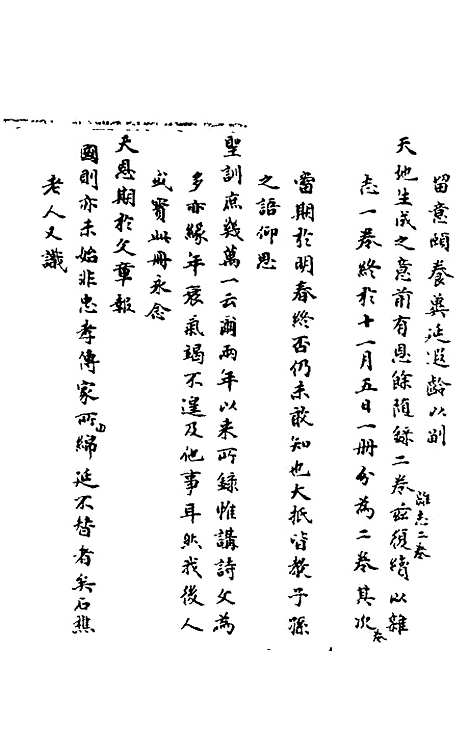 留意頤養冀延遐齡以副
天地生成之意前有恩餘隨録二卷玆復續以雜
雜志二卷
志一卷終於十一月五日一冊分為二卷其次
卷
當期於明春終否仍未敢知也大抵皆教子孫
之語仰思
聖訓庶幾萬一云爾兩年以來所録惟講詩文為
多亦緣年衰氣竭不遑及他事耳然我後人
或寳此冊永念
天恩期於文章報
國則亦未始非忠孝傳家所
由
綿延不替者矣石樵
老人又識